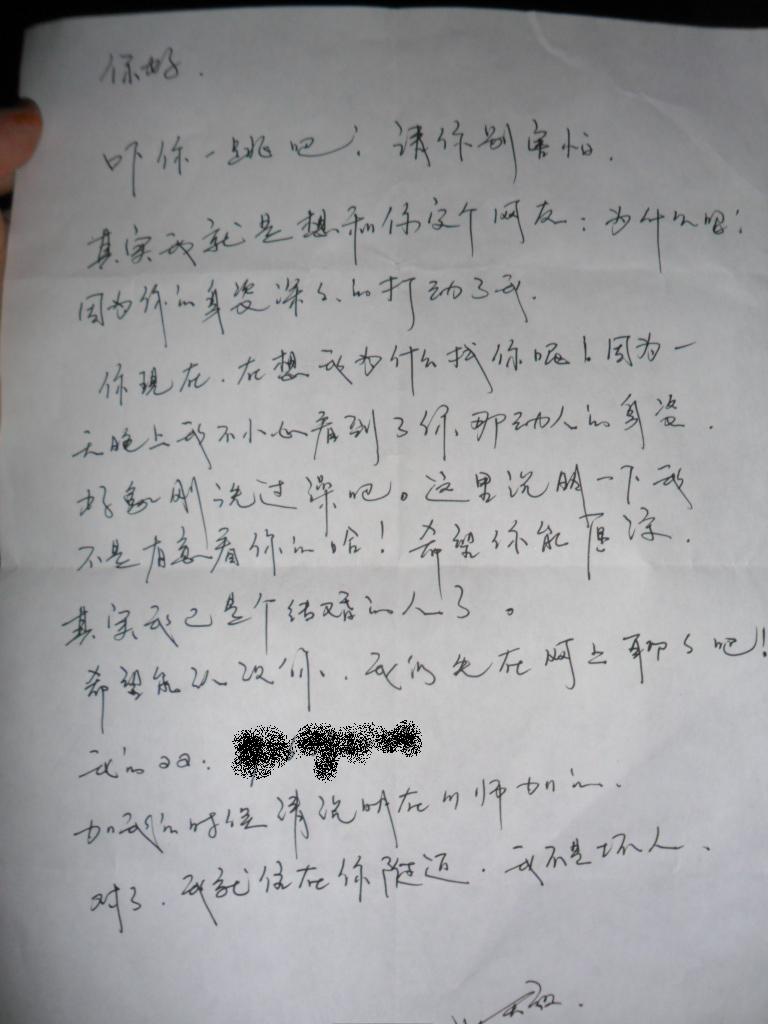 你好.
吓你一跳吧! 请你别害怕.
其实我就是想和你交个网友: 为什么呢!
因为你的身姿深深的打动了我.
你现在.在想我为什么找你呢!因为一
天晚上我不小心看到了你、那动人的身姿.
好象刚洗过澡吧。这里说明一下我
不是有意看你的哈! 希望你能原谅.
其实我已是个结婚的人了。
希望能认识你、.我们先在网上聊聊吧!
我的QQ:
加我的时候请说明在 师加的.
对了.我就住在你 .我不是坏人.